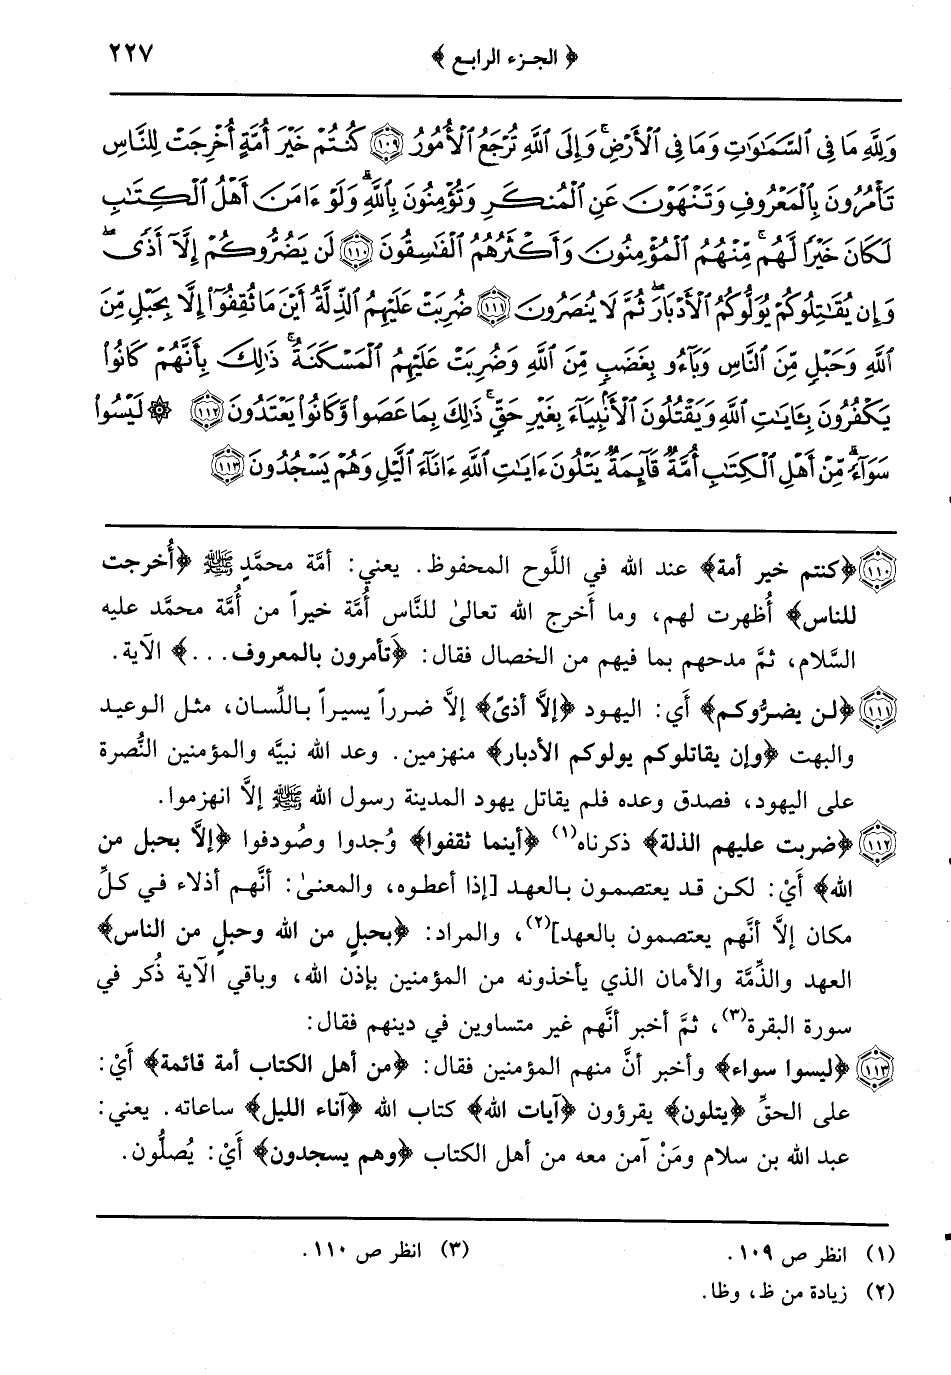 ﴿ الجزء الرابع ﴾ ٢٢٧
وَلِلَّهِ مَا فِى ٱلسَّمَـٰوَٰتِ وَمَا فِى ٱلْأَرْضِ ۚ وَإِلَى ٱللَّهِ تُرْجَعُ ٱلْأُمُورُ ١٠٩ كُنتُمْ خَيْرَ أُمَّةٍ أُخْرِجَتْ لِلنَّاسِ
تَأْمُرُونَ بِٱلْمَعْرُوفِ وَتَنْهَوْنَ عَنِ ٱلْمُنكَرِ وَتُؤْمِنُونَ بِٱللَّهِ ۗ وَلَوْ ءَامَنَ أَهْلُ ٱلْكِتَـٰبِ
لَكَانَ خَيْرًا لَّهُم ۚ مِّنْهُمُ ٱلْمُؤْمِنُونَ وَأَكْثَرُهُمُ ٱلْفَـٰسِقُونَ ١١٠ لَن يَضُرُّوكُمْ إِلَّآ أَذًى ۖ
وَإِن يُقَـٰتِلُوكُمْ يُوَلُّوكُمُ ٱلْأَدْبَارَ ۖ ثُمَّ لَا يُنصَرُونَ ١١١ ضُرِبَتْ عَلَيْهِمُ ٱلذِّلَّةُ أَيْنَ مَا ثُقِفُوٓا۟ إِلَّا بِحَبْلٍ مِّنَ
ٱللَّهِ وَحَبْلٍ مِّنَ ٱلنَّاسِ وَبَآءُو بِغَضَبٍ مِّنَ ٱللَّهِ وَضُرِبَتْ عَلَيْهِمُ ٱلْمَسْكَنَةُ ۚ ذَٰلِكَ بِأَنَّهُمْ كَانُوا۟
يَكْفُرُونَ بِـَٔايَـٰتِ ٱللَّهِ وَيَقْتُلُونَ ٱلْأَنۢبِيَآءَ بِغَيْرِ حَقٍّ ۚ ذَٰلِكَ بِمَا عَصَوا۟ وَّكَانُوا۟ يَعْتَدُونَ ١١٢ ۞ لَيْسُوا۟
سَوَآءً ۗ مِّنْ أَهْلِ ٱلْكِتَـٰبِ أُمَّةٌ قَآئِمَةٌ يَتْلُونَ ءَايَـٰتِ ٱللَّهِ ءَانَآءَ ٱلَّيْلِ وَهُمْ يَسْجُدُونَ ١١٣
١١٠ ﴿كنتم خير أمة﴾ عند الله في اللَّوح المحفوظ. يعني: أمَّة محمَّدٍ ﷺ ﴿أُخرجت
للناس﴾ أُظهرت لهم، وما أَخرج الله تعالىٰ للنَّاس أُمَّة خيراً من أُمَّة محمَّد عليه
السَّلام، ثمَّ مدحهم بما فيهم من الخصال فقال: ﴿تَأمرون بالمعروف...﴾ الآية.
١١١ ﴿لن يضرُّوكم﴾ أَي: اليهود ﴿إلاَّ أذىً﴾ إلاَّ ضرراً يسيراً باللِّسان، مثل الوعيد
والبهت ﴿وإن يقاتلوكم يولوكم الأدبار﴾ منهزمين. وعد الله نبيَّه والمؤمنين النُّصرة
على اليهود، فصدق وعده فلم يقاتل يهود المدينة رسول الله ﷺ إلاَّ انهزموا.
١١٢ ﴿ضربت عليهم الذلة﴾ ذكرناه(١) ﴿أينما ثقفوا﴾ وُجدوا وصُودفوا ﴿إلاَّ بحبل من
الله﴾ أَيْ: لكن قد يعتصمون بالعهد [إذا أعطوه، والمعنىٰ: أنَّهم أذلاء في كلِّ
مكان إلاَّ أنَّهم يعتصمون بالعهد](٢)، والمراد: ﴿بحبلٍ من الله وحبلٍ من الناس﴾
العهد والذِّمَّة والأمان الذي يأخذونه من المؤمنين بإذن الله، وباقي الآية ذُكر في
سورة البقرة(٣)، ثمَّ أخبر أنَّهم غير متساوين في دينهم فقال:
١١٣ ﴿ليسوا سواء﴾ وأخبر أنَّ منهم المؤمنين فقال: ﴿من أهل الكتاب أمة قائمة﴾ أَيْ:
على الحقِّ ﴿يتلون﴾ يقرؤون ﴿آيات الله﴾ كتاب الله ﴿آناء الليل﴾ ساعاته. يعني:
عبد الله بن سلام ومَنْ آمن معه من أهل الكتاب ﴿وهم يسجدون﴾ أَيْ: يُصلُّون.
(١) انظر ص ١٠٩. (٣) انظر ص ١١٠.
(٢) زيادة من ظ، وظا.